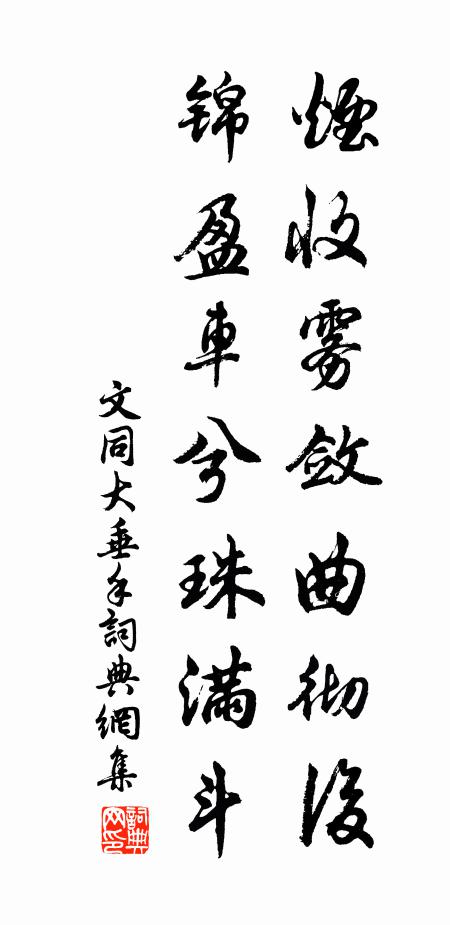 煙收雾斂曲彻後
锦盈車兮珠满斗
文同大垂手詞典網集
詞典网印